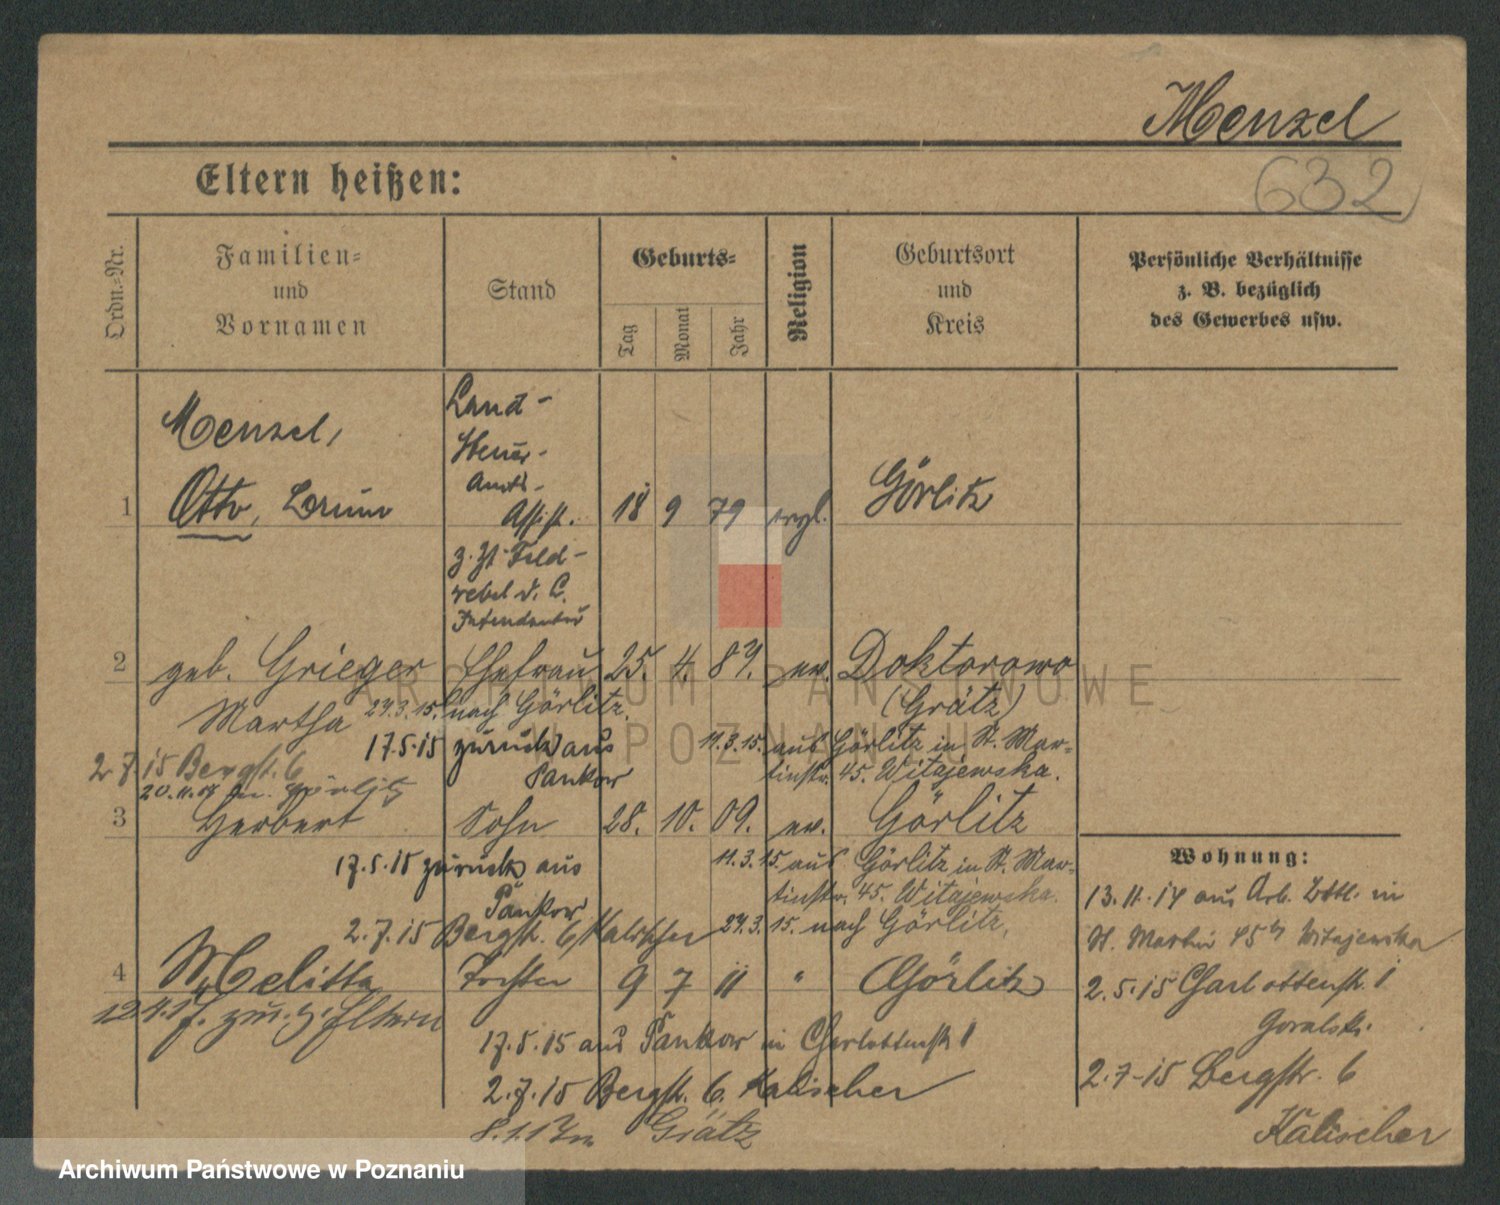 Menzel
632
Eltern heißen:
Ordn.-Nr.
Familien-
und
Vornamen
Stand
Geburts-
Tag
Monat
Jahr
Religion
Geburtsort
und
Kreis
Persönliche Verhältnisse
z. B. bezüglich
des Gewerbes usw.
Menzel,
1 Otto, Bruno
Land-
steuer-
Amts-
Assist.
z. Zt. Feld-
webel d. L.
Intendantur
18 9 79 evgl. Görlitz
2 geb. Grieger Ehefrau 25. 4. 87. ev. Doktorowo
(Grätz)
Martha 27.3.15. nach Görlitz.
17.5.15 zurück aus
Pankow
11.3.15. aus Görlitz in St. Mar-
tinstr. 45. Witajewska.
2.7.15 Bergst. 6
20.11.17 Görlitz
3 Herbert Sohn 28. 10. 09. ev. Görlitz
17.5.15 zurück aus
Pankow
11.3.15. aus Görlitz in St. Mar-
tinstr. 45. Witajewska.
2.7.15 Bergstr. 6 Kalischer 27.3.15. nach Görlitz.
4 Melitta Tochter 9 7 11 " Görlitz
zur. z. Eltern
17.5.15 aus Pankow in Charlottenstr 1
2.7.15 Bergstr. 6. Kalischer
Grätz
Wohnung:
13.11.14 aus in
St. Martin 45 Witajewska
2.5.15 Charlottenstr. 1
Goralski
2.7-15 Bergstr. 6
Kalischer
ARCHIWUM PAŃSTWOWE
W POZNANIU
Archiwum Państwowe w Poznaniu